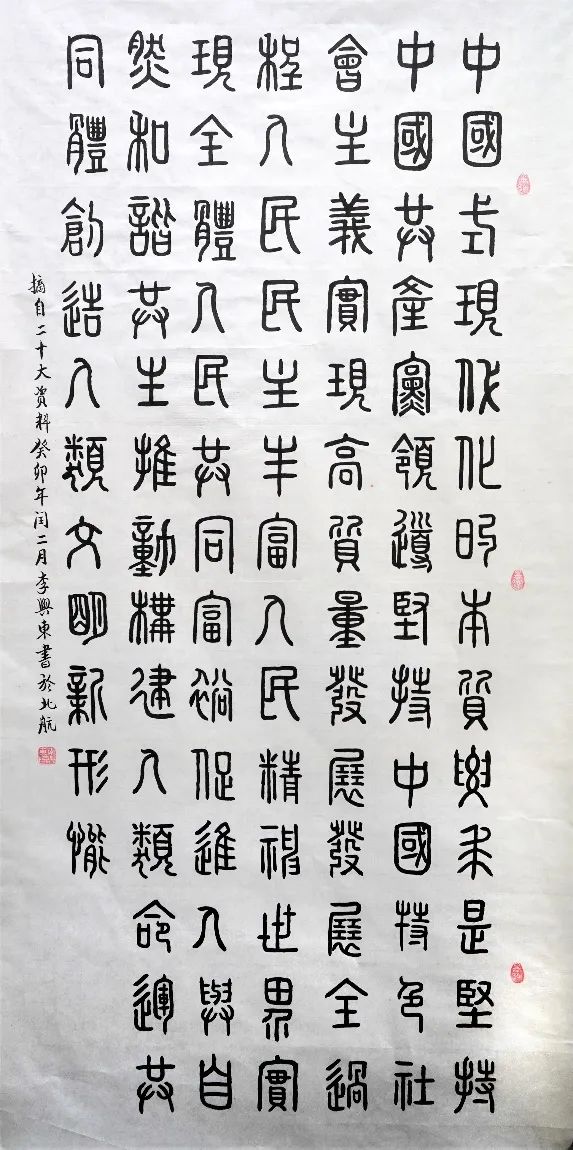 中國式現代化的本質要求是堅持
中國共產黨領導堅持中國特色社
會主義實現高質量發展發展全過
程人民民主丰富人民精神世界實
現全體人民共同富裕促進人與自
然和諧共生推動構建人類命運共
同體創造人類文明新形態
摘自二十大資料癸卯年闰二月李興東書於北航